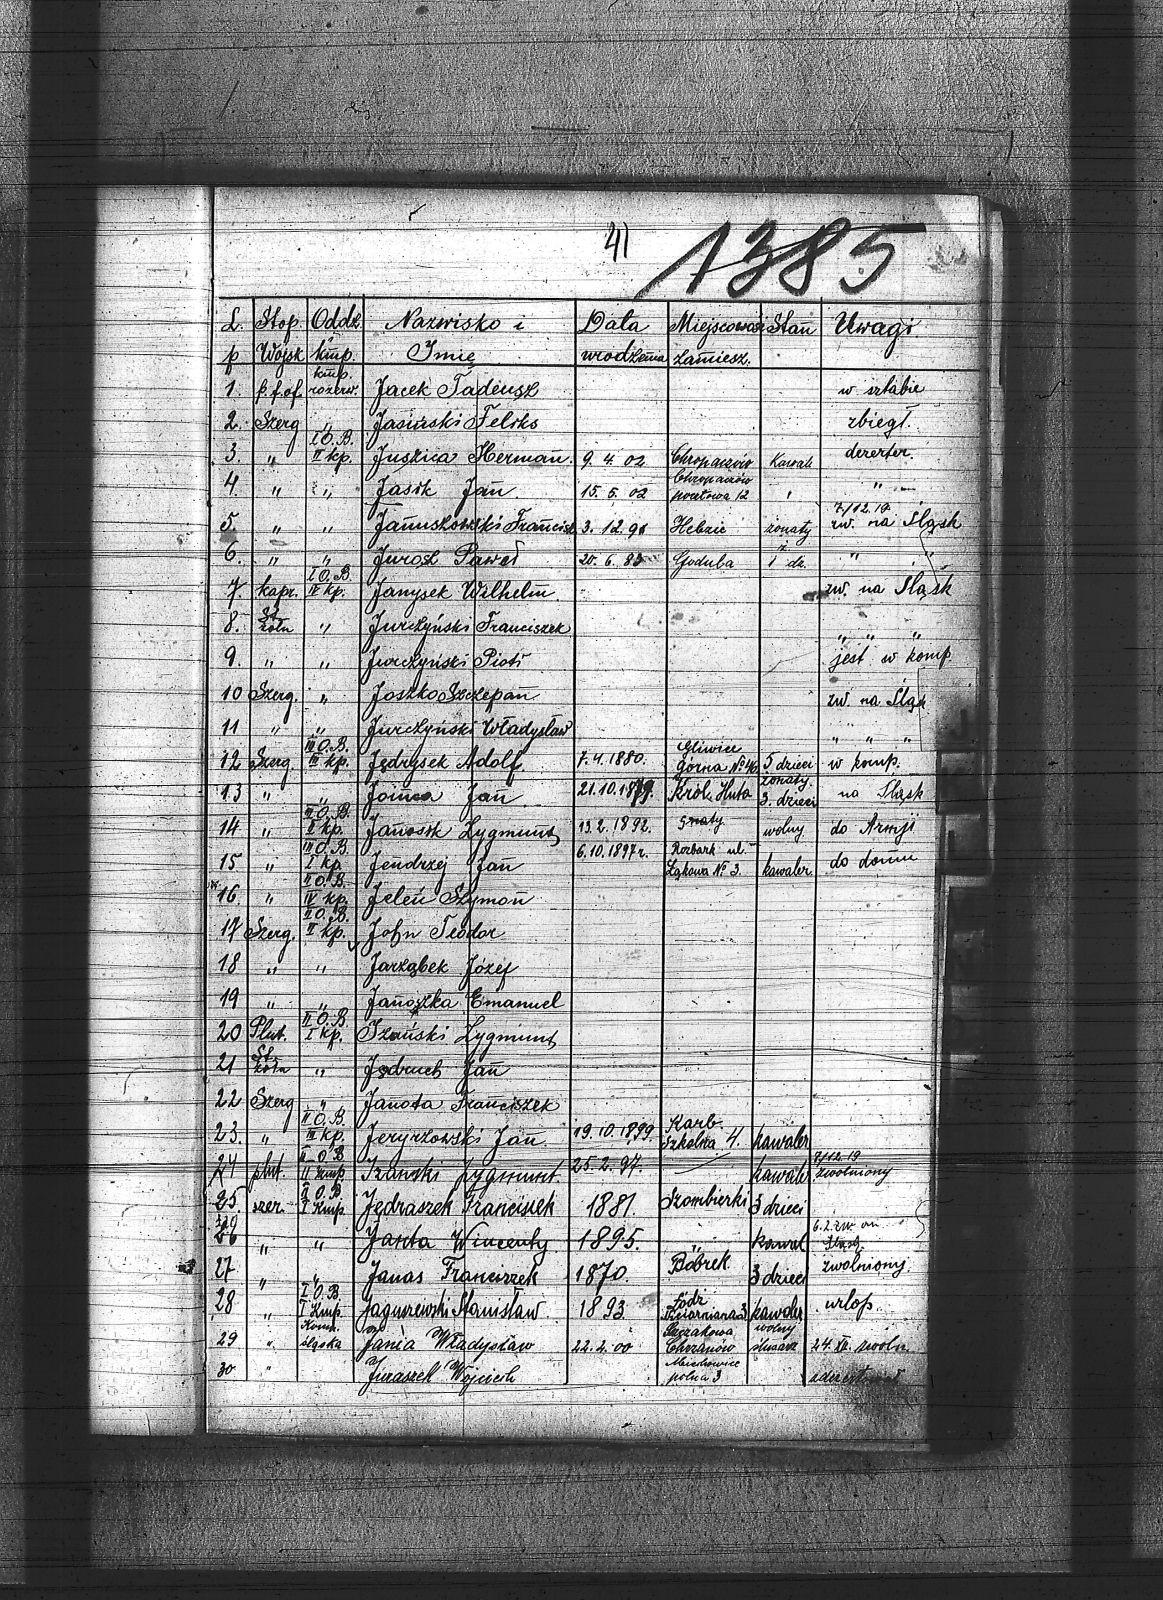 41 1385
L. Stop. Oddz. Nazwisko i Data Miejscowość Stan Uwagi
p Wojsk kmp. Imię urodzenia zamiesz.
1. p.f.of kmp. rezerw. Jacek Tadeusz w sztabie
2. Szerg „ Jasiński Feliks zbiegł.
3. „ I O.B. II kp. Juszica Herman. 9.4.02 Chropaczów Kawale dezerter.
4. „ „ Jasik Jan. 15.5.02 Chropaczów pocztowa 12 „ „
5. „ „ Januszkowski Francisz 3.12.96 Hebzie żonaty 7/12.19 zw. na Śląsk
6. „ „ Jurosz Paweł 20.6.83 Godula ż. 1 dz. „ „
7. kapr. I O.B. IV kp. Janysek Wilhelm. zw. na Śląsk
8. St. żołn „ Jurczyński Franciszek „ „ „
9. „ „ Jurczyński Piotr jest w komp.
10 Szerg. „ Joszko Szczepan zw. na Śląsk
11 „ „ Jurczyński Władysław „ „ „
12 Szerg. III O.B. III kp. Jędrysek Adolf. 7.4.1880. Gliwice Górna № 46. 5 dzieci w komp.
13 „ „ Joińca Jan 21.10.1879. Król. Huta żonaty 3. dzieci na Śląsk
14 „ II O.B. II kp. Janosik Zygmunt 13.2.1892. wolny do Armji
15 „ III O.B. I kp. Jendrzej Jan 6.10.1897 r. Rozbark ul. Łąkowa № 3. kawaler do domu
16. „ II O.B. IV kp. Jeleń Szymon
17 Szerg. II O.B. II kp. John Teodor
18 „ „ Jarząbek Józef
19 „ „ Janoszka Emanuel
20 Plut. II O.B. I kp. Iżański Zygmunt
21 St. żołn „ Jędruch Jan
22 Szerg „ Janota Franciszek
23. „ II O.B. III kp. Jeryzkowski Jan. 19.10.1899 Karb. Szkolna 4. kawaler
24 plut. II O.B. II Kmp Iżański Zygmunt 25.2.97. kawale 7/12.19 zwolniony
25. szer. II O.B. I Kmp. Jędraszek Franciszek 1881. Szombierki 3 dzieci
26 „ „ Janta Wincenty 1895. „ kawal 6.2. zw. na Śląsk
27 „ „ Janas Franciszek 1870. Bobrek 3 dzieci zwolniony.
28 „ I O.B. I Kmp. Jaguszewski Stanisław 1893 Łódź kawaler urlop.
29 „ Kom. śląska Jania Władysław 22.2.00 Szczakowa Chrzanów wolny ślusarz 24.XII. zwoln.
30 „ Juraszek Wojciech Miechowice polna 3